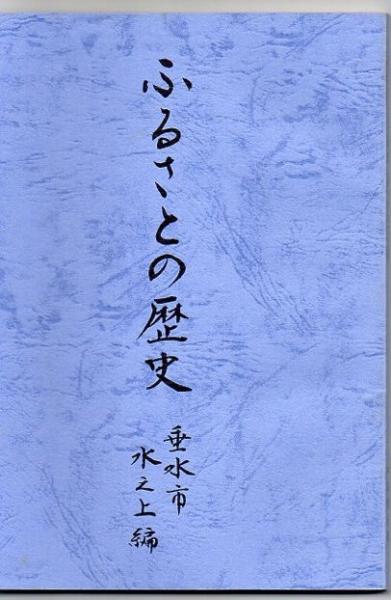 ふるさとの歴史
垂水市
水之上編